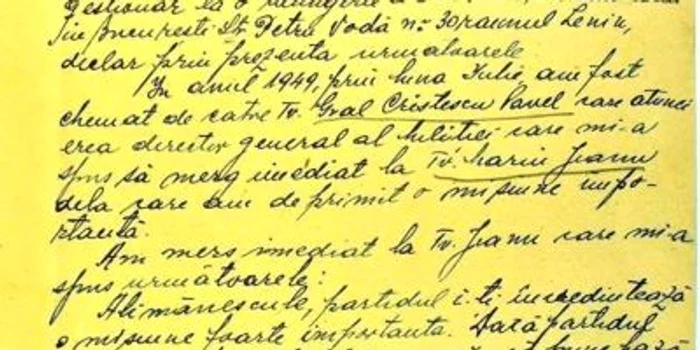 Gestionar la o
în București Str. Petru Vodă nr. 30 raionul Lenin,
declar prin prezenta urmatoarele
In anul 1949, prin luna Iulie, am fost
chemat de catre Tv. Gral Cristescu Pavel care atunci
erea director general al Miliției care mi-a
spus să merg imediat la Tv. Marin Jeanu
dela care am de primit o misiune impo-
rtantă.
Am mers imediat la Tv. Jeanu care mi-a
spus următoarele:
Alimănescule, partidul i-ți încredintează
o misiune foarte importanta. Dacă partidul